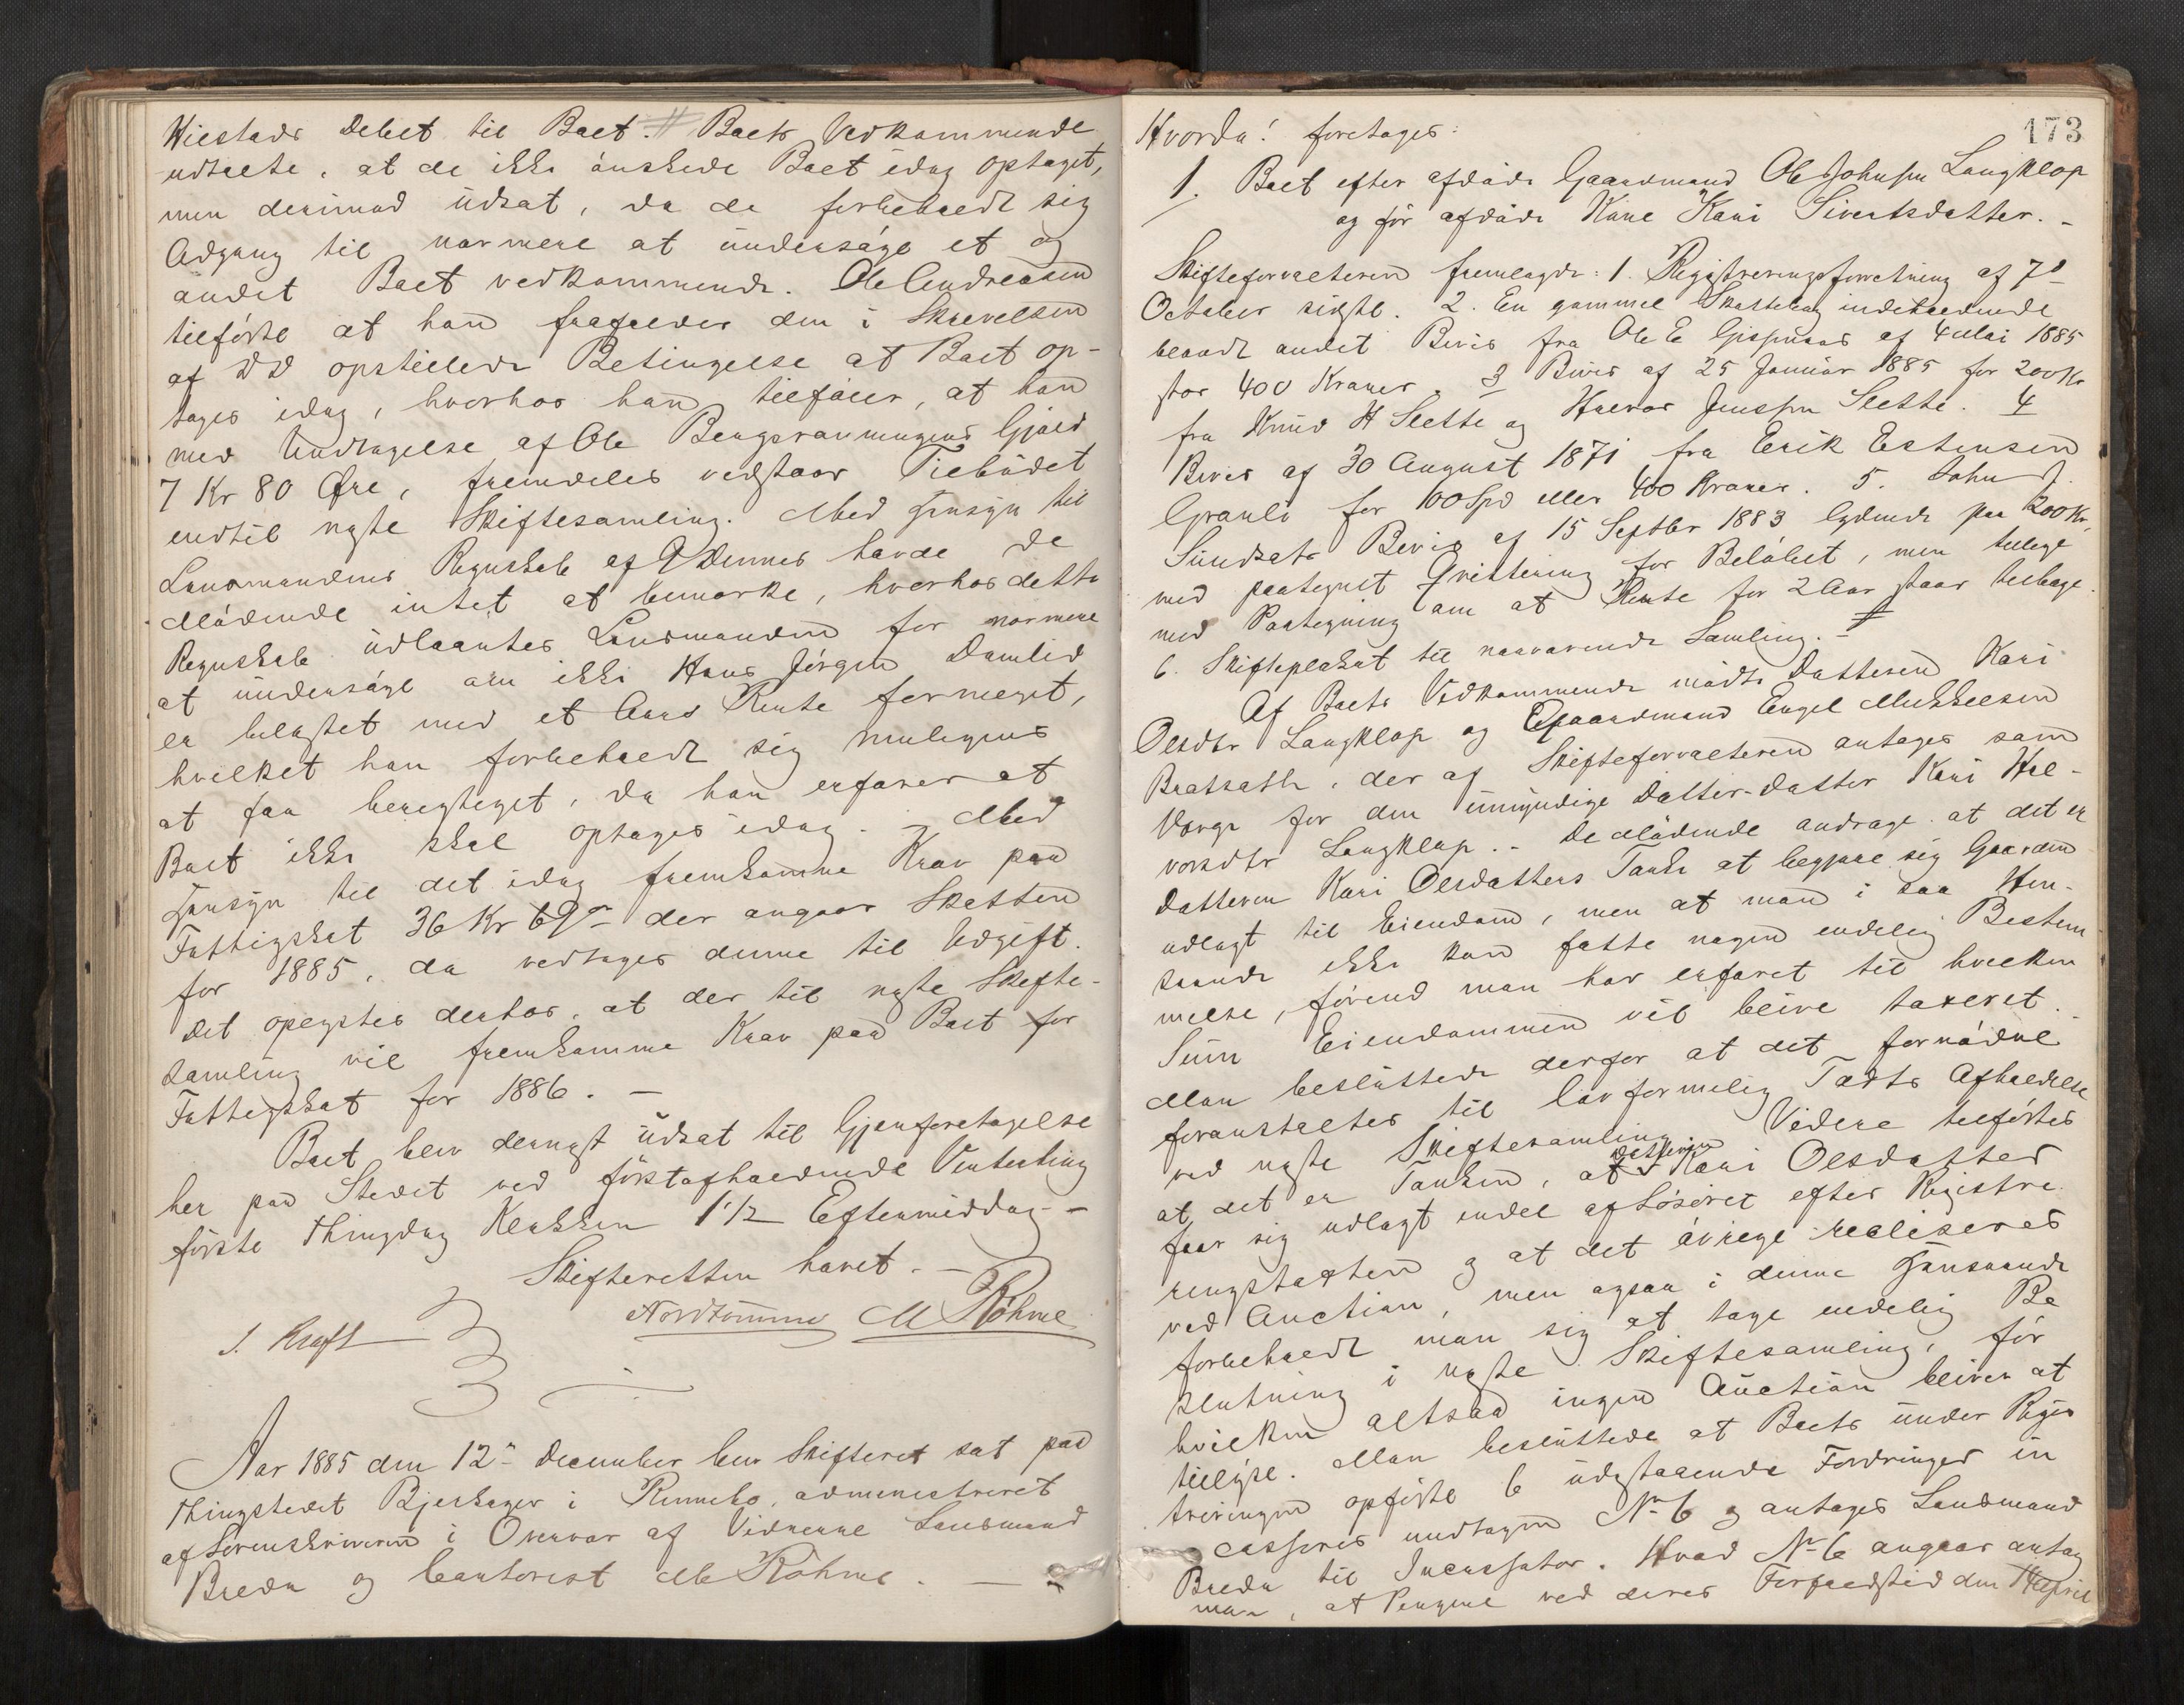 Wiestads Debet til Boet. Boets Vedkommende
udtalte, at de ikke ønskede Boet idag optaget,
men derimod udsat, da de forbeholdt sig
Adgang til nærmere at undersøge et og
andet Boet vedkommende. Ole Andreasen
tilførte at han frafalder den i Skrivelsen
af DD opstillede Betingelse at Boet op-
tages idag, hvorhos han tilføier, at han
med Undtagelse af Ole Gjæld
7 Kr 80 Øre, fremdeles vedstaar Tilbudet
indtil næste Skiftesamling. Med Hensyn til
Lensmandens Regnskab af 9 dennes havde de
Mødende intet at bemærke, hvorhos dette
Regnskab udlaantes Lensmanden for nærmere
at undersøge om ikke Hans Jørgen Damlid
er belastet med et Aars Rente formeget,
hvilket han forbeholdt sig muligens
at faa berigtiget, da han erfarer at
Boet ikke skal optages idag. – Med
Hensyn til det idag fremkomne Krav paa
Fattigskat 36 Kr 69 der angaar Skatten
for 1885, da vedtages denne til Udgift.
Det oplystes derhos, at der til næste Skifte-
samling vil fremkomme Krav paa Boet for
Fattigskat for 1886. –
Boet blev dernæst udsat til Gjenforetagelse
her paa Stedet ved førstafholdende Vinterting
første Thingdag Klokken 1 1/2 Eftermiddag –
Skifteretten hævet. –
J. Kraft Nordtømme M Røhme
Aar 1885 den 12 December blev Skifteret sat paa
Thingstedet Bjerkager i Rennebo, administreret
af Sorenskriveren i Overvær af Vidnerne Lensmand
Breda og Contorist M Røhme. –
173
Hvorda! foretages:
1. Boet efter afdøde Gaardmand Ole Johnsen Langklop
og før afdøde Kone Kari Sivertsdatter. –
Skifteforvalteren fremlagde: 1. Registreringsforretning af 7
October sidstl. 2. En gammel Skattebog indeholdende
blandt andet Bevis fra Ole E af 4 Mai 1885
stor 400 Kroner. 3 Bevis af 25 Januar 1885 for 200 Kr
fra Knud H Slette og Halvor Jenssen Slette. 4
Bevis af 30 August 1871 fra Erik Estensen
Granli for 100 Spd eller 400 Kroner. 5. John J.
Sundsets Bevis af 15 Septbr 1883 lydende paa 200 Kr,
med paategnet Qvittering for Beløbet, men tillige
med Paategning om at Rente for 2 Aar staar tilbage.
6. Skifteplakat til nærværende Samling. –
Af Boets Vedkommende mødte Datteren Kari
Olsdtr Langklop og Gaardmand Engel Mikkelsen
Bratsatle, der af Skifteforvalteren antages som
Værge for den umyndige Datter-datter Kari Hal-
vorsdtr Langklop. – De Mødende androge at det er
datteren Kari Olsdatters Tanke at begjære sig Gaarden
udlagt til Eiendom, men at man i saa Hen-
seende ikke kan fatte nogen endelig Bestem-
melse, førend man har erfaret til hvilken
Sum Eiendommen vil blive taxeret.
Man besluttede derfor at det fornødne
foranstaltes til lovformelig Taxts Afholdelse
ved næste Skiftesamling. Videre tilførtes
at det er Tanken, at datteren Kari Olsdatter
faar sig udlagt endel af Løsøret efter Registre-
ringstaxten og at det øvrige realiseres
ved Auction, men ogsaa i denne Henseende
forbeholdt man sig at tage endelig Be
slutning i næste Skiftesamling, før
hvilken altsaa ingen Auction bliver at
tillyse. Man besluttede at Boets under Regis
treringen opførte 6 udestaaende Fordringer in
casseres undtagen No 6 og antages Lensmand
Breda til Incassator. Hvad No 6 angaar antog
man, at Pengene ved deres Forfaldstid den 14 April